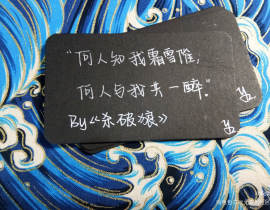 “何人知我霜雪催，
何人与我共一醉。”
By《杀破狼》